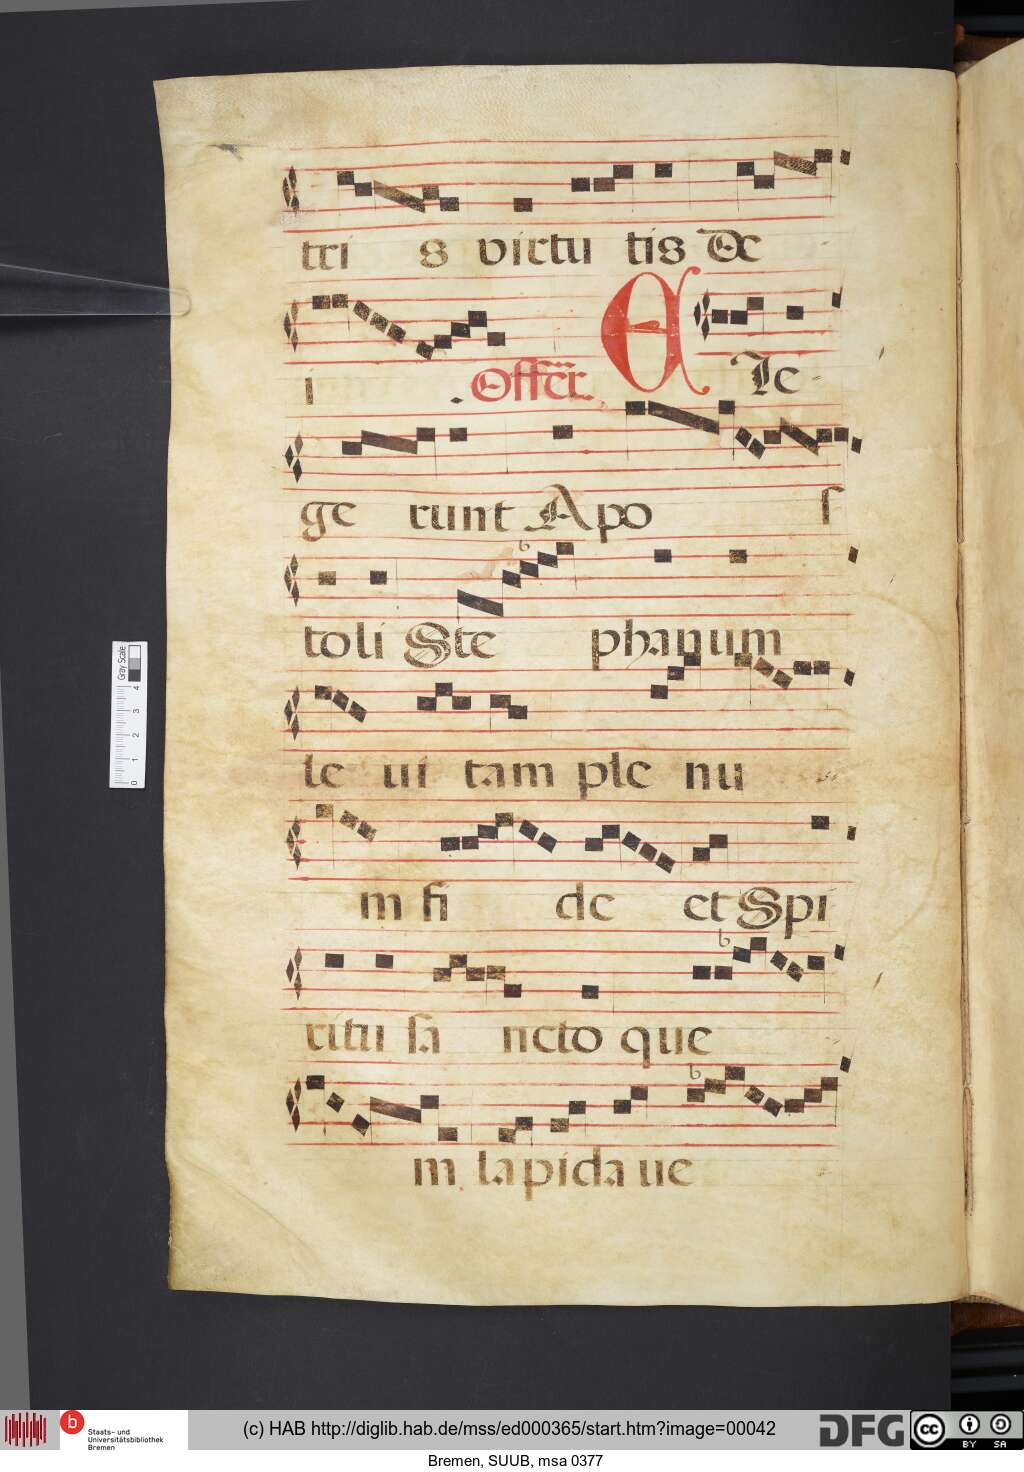 tri s virtu tis De
i . Offer. E Ie
ge runt Apo s
toli Ste phanum
le ui tam ple nu
m fi de et Spi
ritu sa ncto que
m la pida ue
Gray Scale
0 1 2 3 4
b Staats- und Universitätsbibliothek Bremen
(c) HAB http://diglib.hab.de/mss/ed000365/start.htm?image=00042
DFG cc BY SA
Bremen, SUUB, msa 0377